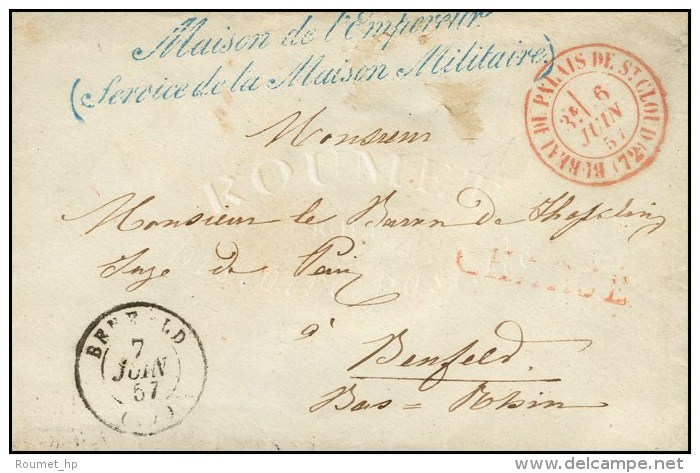 Maison de l'Empereur
(Service de la Maison Militaire)
BUREAU DU PALAIS DE ST CLOUD (72)
3E
6
JUIN
57
Monsieur
ROUMET
Monsieur le Baron de
Juge de Paix
CHARGÉ
à
Benfeld.
Bas=Rhin
BENFELD
7
JUIN
57
Roumet_hp
delcampe.net